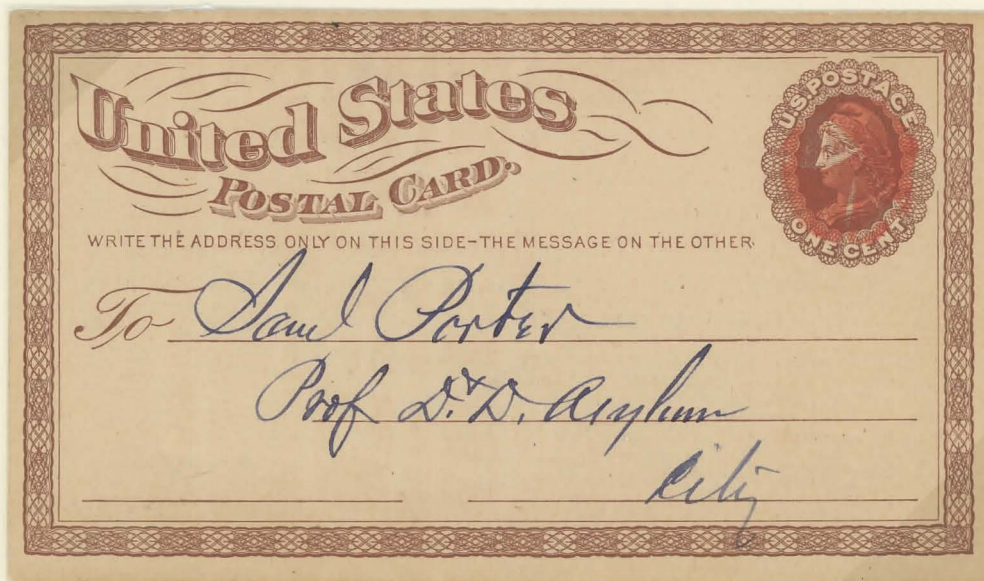 United States
POSTAL CARD.
U.S. POSTAGE
ONE CENT
WRITE THE ADDRESS ONLY ON THIS SIDE-THE MESSAGE ON THE OTHER.
To Saml Porter
Prof D. & D. Asylum
City